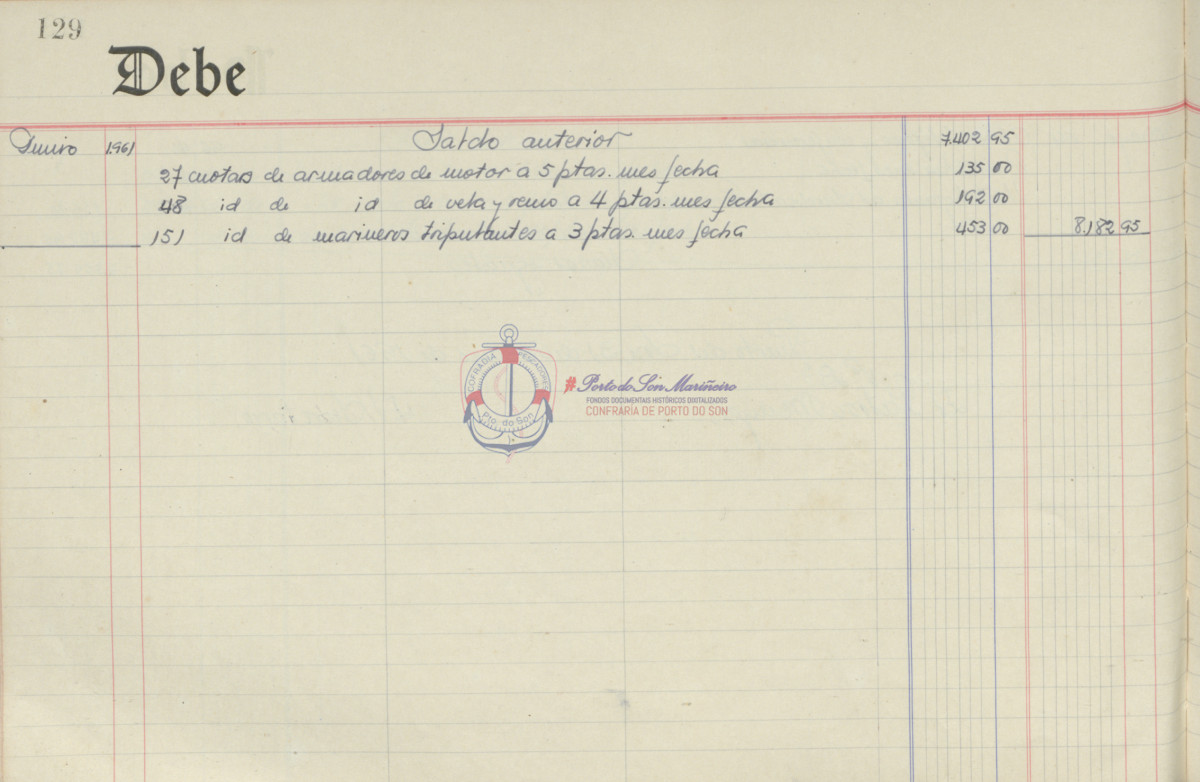 129
Debe
Junio 1961 Saldo anterior 7.402 95
27 cuotas de armadores de motor a 5 ptas. mes fecha 135 00
48 id de id de vela y remo a 4 ptas. mes fecha 192 00
151 id de marineros tripulantes a 3 ptas. mes fecha 453 00 8.182 95
COFRADIA PESCADORES
Pto. do Son
#Porto do Son Mariñeiro
FONDOS DOCUMENTAIS HISTÓRICOS DIXITALIZADOS
CONFRARÍA DE PORTO DO SON